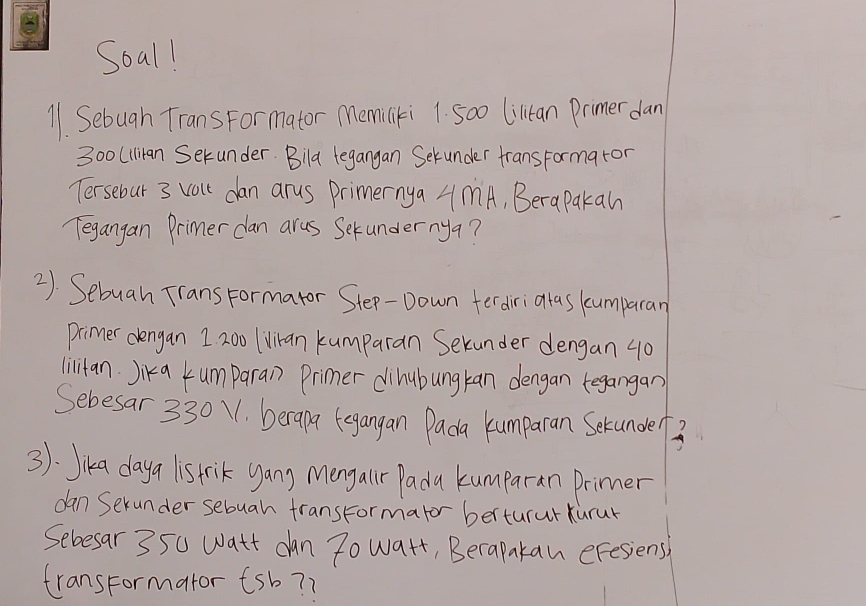 Soal!
1). Sebuah Transformator Memiliki 1.500 lilitan Primer dan
300 Lilitan Sekunder. Bila tegangan Sekunder transformator
Tersebut 3 Volt dan arus Primernya 4 mA, Berapakah
Tegangan Primer dan arus Sekundernya?
2). Sebuah Transformator Step-Down terdiri atas kumparan
Primer dengan 1.200 lilitan kumparan Sekunder dengan 40
lilitan. Jika kumparan Primer dihubungkan dengan tegangan
Sebesar 330 V, berapa tegangan Pada kumparan Sekunder?
3). Jika daya listrik yang Mengalir Pada kumparan Primer
dan Sekunder sebuah transformator berturut turut
Sebesar 350 Watt dan 70 Watt, Berapakah efesiensi
transformator tsb??